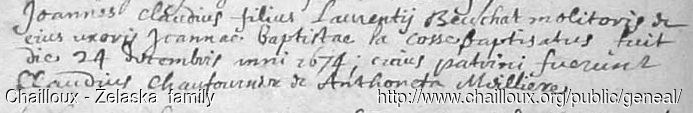 Joannes Claudius filius Laurentij Beuchat molitoris &
eius uxoris Joannae baptistae la Cosse baptisatus fuit
die 24 decembris anni 1674; cuius patrini fuerunt
Claudius Chaufournier & Anthoneta Meilliere,
Chailloux - Zelaska family
http://www.chailloux.org/public/geneal/